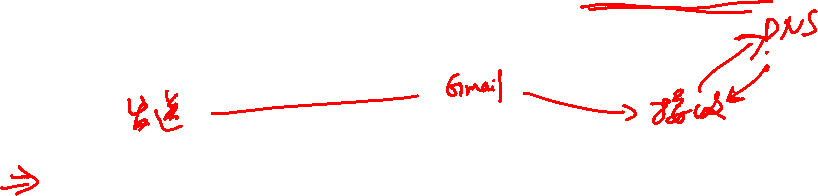 DNS
发送 Gmail 接收